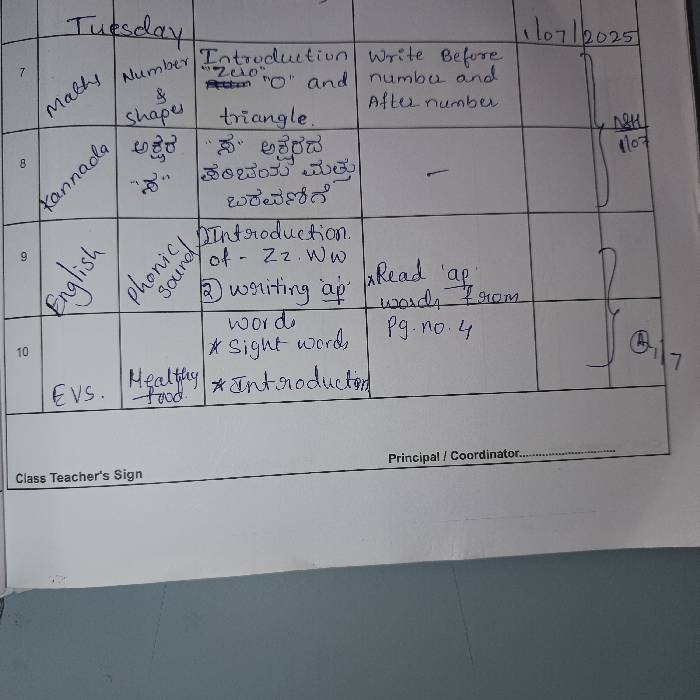 Tuesday 1/07/2025
7 Maths Number & shapes Introduction "Zero" "0" and triangle. Write Before number and After number
8 Kannada ಅಕ್ಷರ "ಸ" "ಸ" ಅಕ್ಷರದ ಮತ್ತು ಬರವಣಿಗೆ -
1/07
9 English Phonic sound 1) Introduction of - Zz. Ww 2) writing 'ap' words * Sight words *Read 'ap' words from Pg. no. 4
10 EVS. Healthy food * Introduction
1/7
Class Teacher's Sign
Principal / Coordinator........................